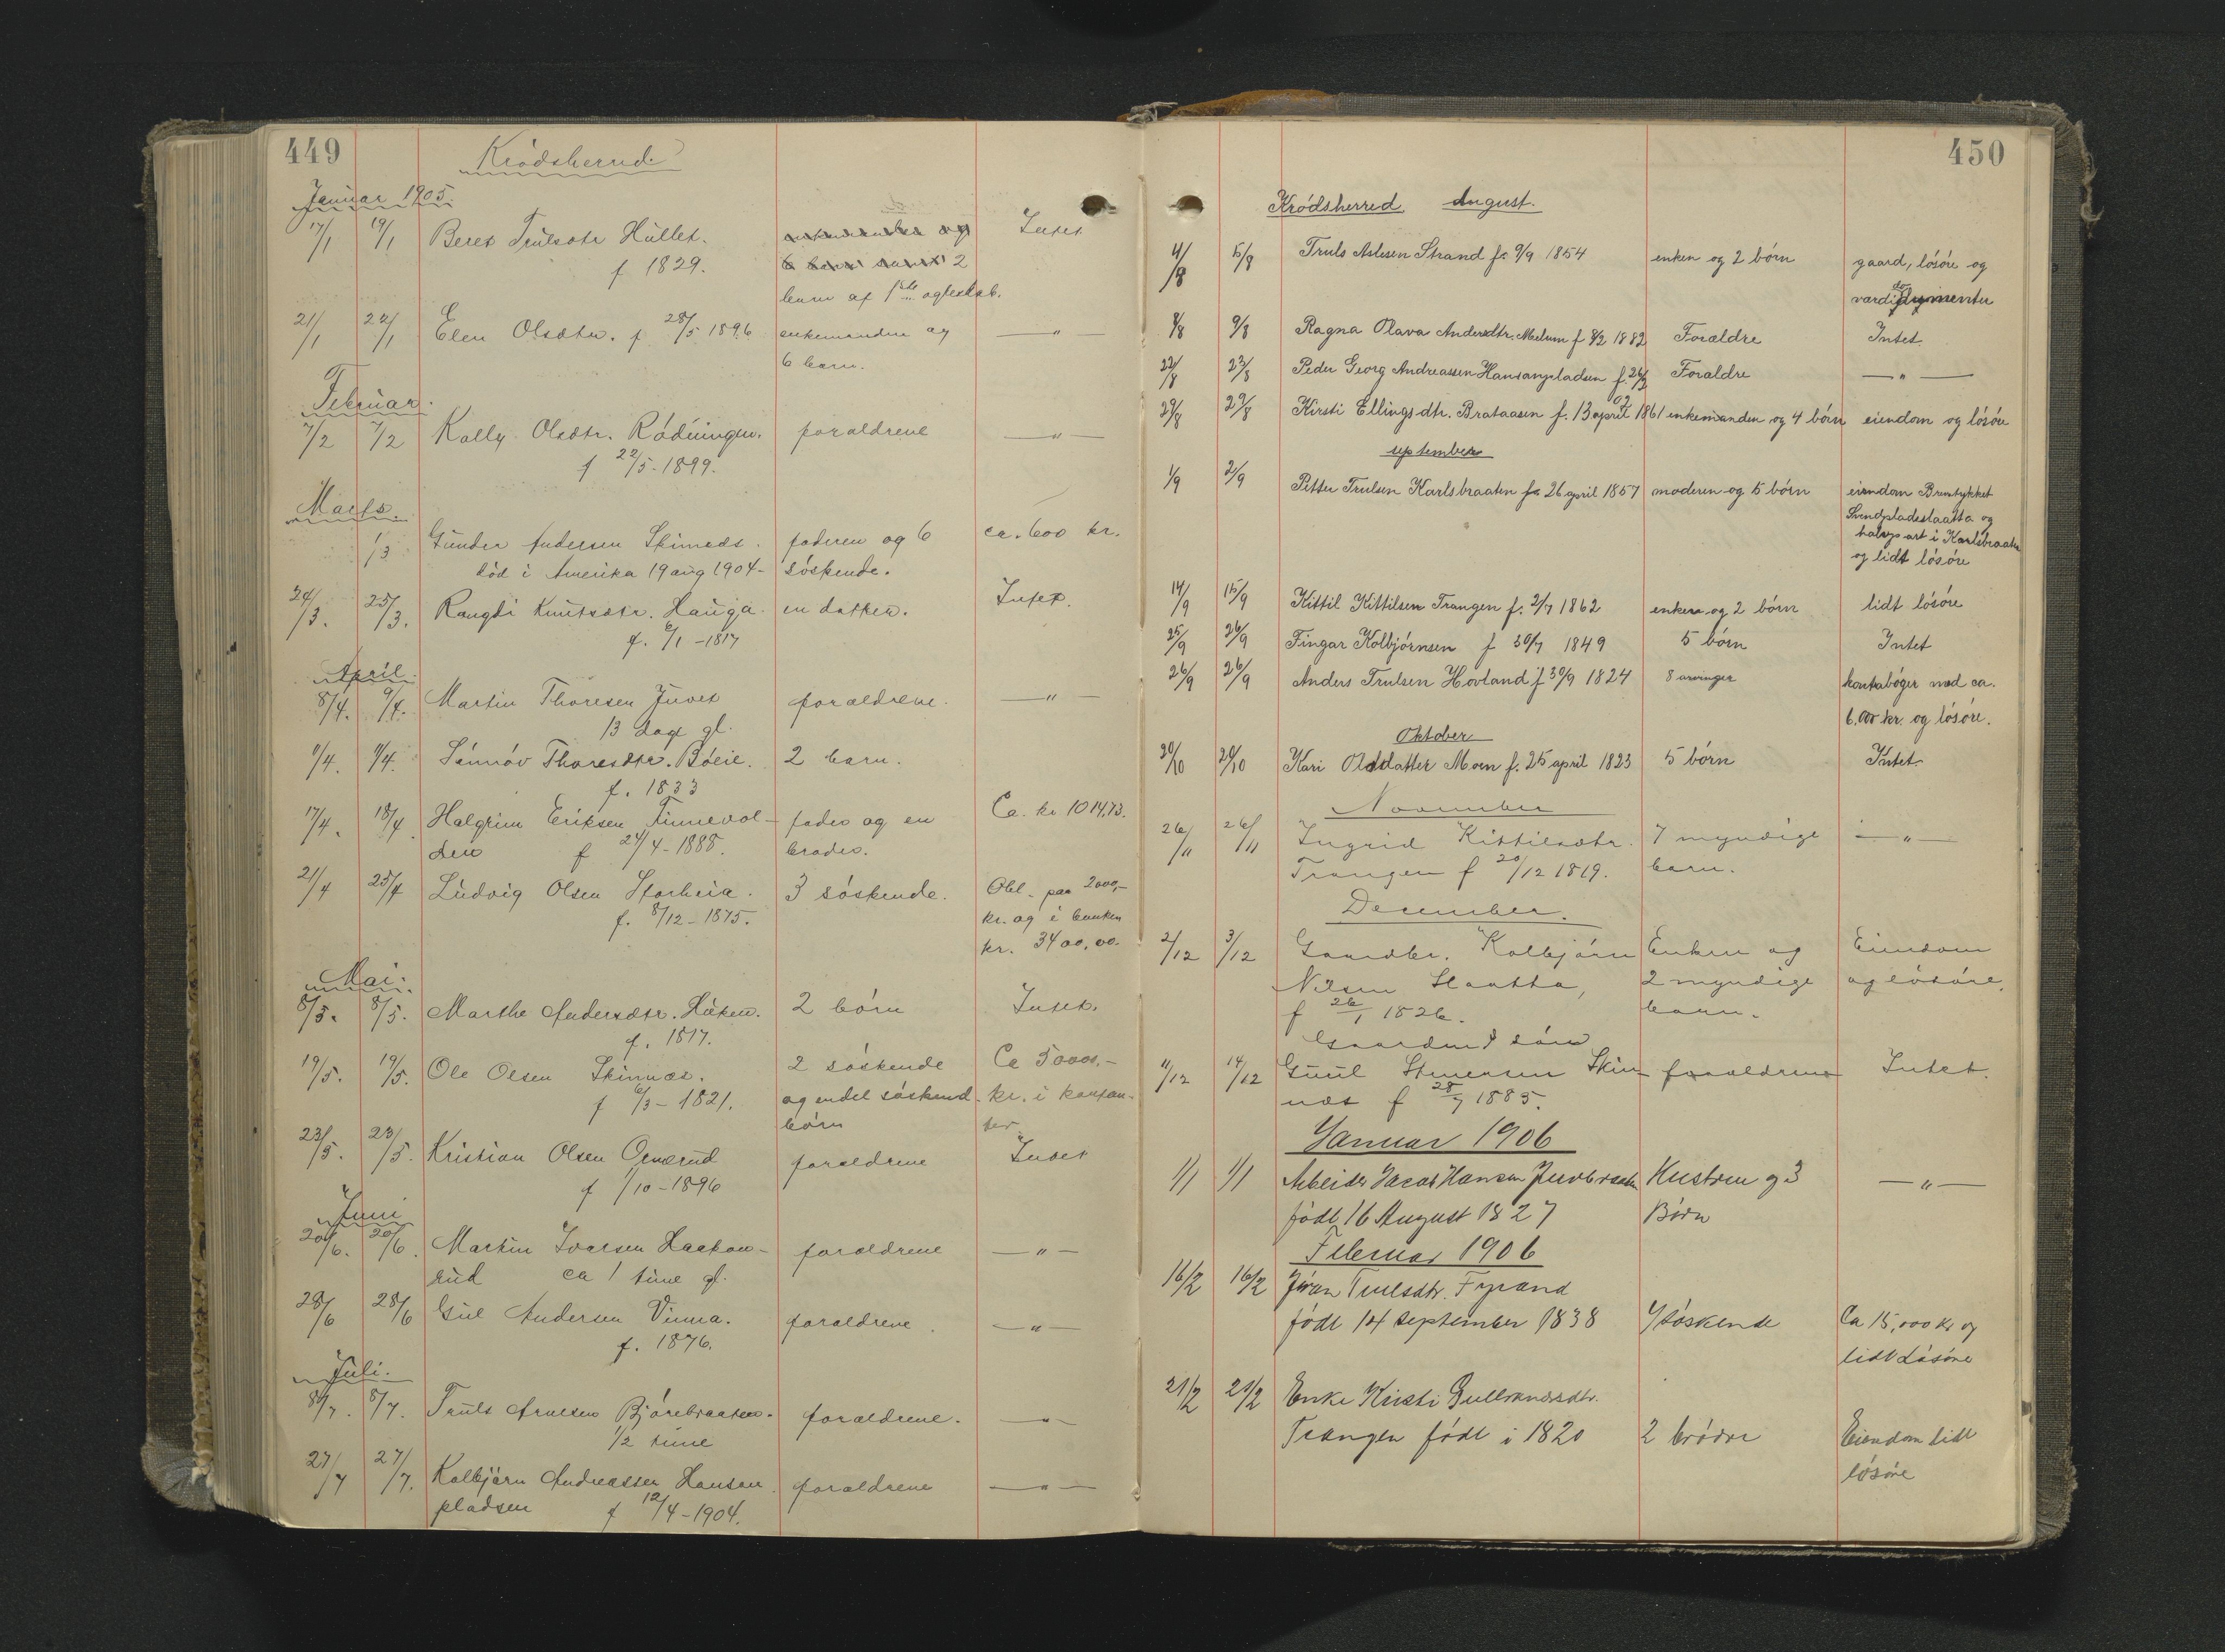 449
Krödsherred.
Januar 1905.
17/1 19/1 Beret Trulsdtr Hullet. Intet
f 1829. 2
barn af 1ste egteskab.
21/1 22/1 Elen Olsdtr. f 28/5 1896 enkemanden og — " —
6 barn.
Februar.
7/2 7/2 Kally Olsdtr. Rödningen. foraldrene — " —
f 22/5-1899.
Marts.
/3 Gunder Andersen Skinnæs. faderen og 6 ca. 600 kr.
död i Amerika 19 aug 1904- söskende.
24/3. 25/3. Rangdi Knutsdtr. Hauga. en datter. Intet.
f. 6/1-1817
April.
8/4. 9/4. Martin Thoresen Juvet foraldrene. — " —
13 dag gl.
9/4. 9/4. Sünnöv Thoresdtr. Böeie. 2 barn.
f. 1833
17/4. 18/4. Halgrim Eriksen Finnevol- fader og en Ca. kr 1014,73.
den f 24/4-1888. broder.
21/4 25/4 Ludvig Olsen Storheia. 3 söskende. Obl. paa 2000,-
f. 8/12-1875. kr. og i banken
kr. 3400,00.
Mai.
8/5. 8/5. Marthe Andersdtr. Haken. 2 börn Intet.
f. 1817.
19/5. 19/5. Ole Olsen Skinnæs. 2 söskende Ca 5000,-
f 6/3-1821. og endel söskend- kr. i kontan-
börn ter
23/5. 23/5. Kristian Olsen Ornerud foraldrene Intet
f 1/10-1896
Juni
20/6. 20/6. Martin Ivarsen Haakon- foraldrene — " —
rud ca 1 time gl.
28/6 28/6 Gul Andersen Vinna. foraldrene. — " —
f. 1876.
Juli.
8/7. 8/7. Truls Arnesen Björebraaten. foraldrene. — " —
1/2 time
27/7 27/7. Kolbjörn Andreassen Hansan foraldrene — " —
pladsen f 12/4-1904.
450
Krödsherred August.
4/8 15/8 Truls Aslesen Strand fö 9/9 1854 enken og 2 börn gaard, lösöre og
8/8 9/8 Ragna Olava Andersdtr. Mælum f 8/2 1882 Forældre Intet
22/8 23/8 Peder Georg Andreassen Hansanpladsen f. 26/3 Foraldre — " —
02
29/8 29/8 Kirsti Ellings dtr. Brataasen f. 13 april 1861 enkemanden og 4 börn eiendom og lösöre
september
1/9 2/9 Petter Trulsen Karlsbraaten fö 26 april 1857 moderen og 5 börn eiendom Brenstykket
Svendpladeslaatta og
halvpart i Karlsbraaten
og lidt lösöre
14/9 15/9 Kittil Kittilsen Trangen f. 2/7 1862 enken og 2 börn lidt lösöre
25/9 26/9 Fingar Kolbjörnsen f 30/7 1849 5 börn Intet
26/9 26/9 Anders Trulsen Hovland f 30/9 1824 8 arvinger kontrabøger med ca.
6.000 kr. og lösöre.
Oktober
20/10 20/10 Kari Olsdatter Moen f. 25 april 1823 5 börn Intet
November
26/11 26/11 Ingrid Kittilsdtr. 7 myndige — " —
Trangen f 20/12 1819. barn.
December.
2/12 3/12 Gaardbr. Kolbjörn Enken og Eiendom
Nilsen Slaatta, 2 myndige og lösöre.
f 26/1 1826. barn.
Gaardmd sön
11/12 14/12 Guul Stenersen Skin- foraldrene Intet.
næs f 28/7 1885.
Januar 1906
1/1 1/1 Arbeider Jacob Hansen Hustru og 3 — " —
född 16 August 1827 Börn
Februar 1906
16/2 16/2 Jöran Trulsdtr. Frysand
födt 14 September 1838 4 söskende Ca 15,000 kr og
lidt Lösöre
21/2 21/2 Enke Kristi Gulbrandsdtr.
Trangen födt i 1820 2 brödre Eiendom lidt
lösöre